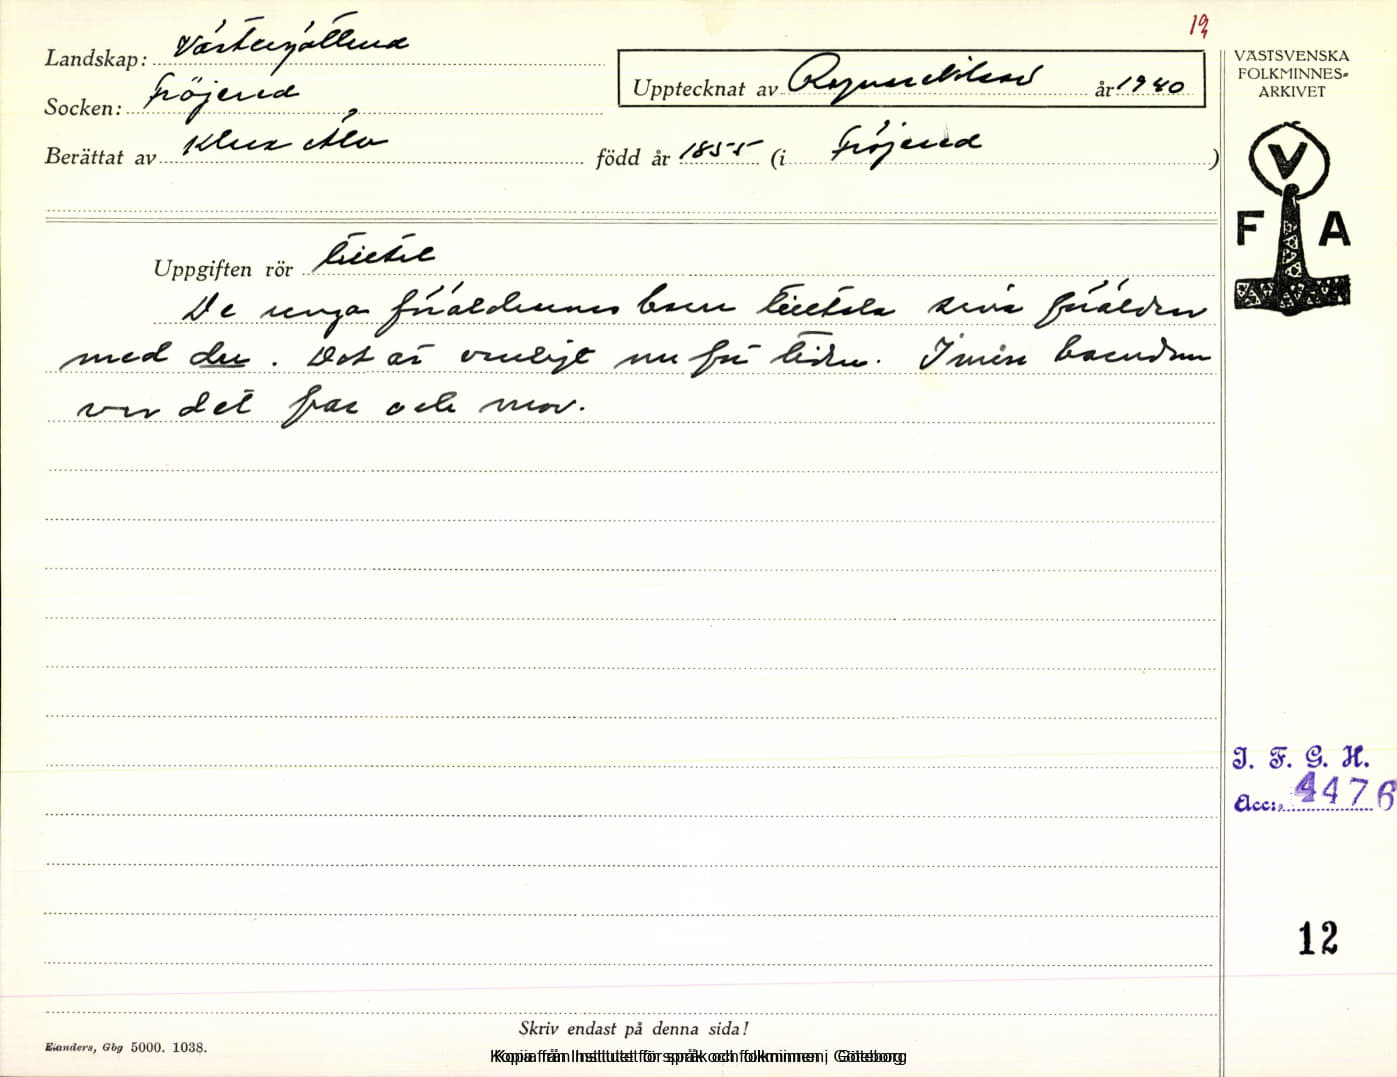 19
Landskap: Västergötland
Socken: Fröjered
Berättat av Klas Alm
Upptecknat av Ragnar Nilsson år 1940
född år 1855 (i Fröjered)
VÄSTSVENSKA
FOLKMINNES-
ARKIVET
V
F A
Uppgiften rör tilltal
De unga föräldrarnas barn tilltala sina föräldrar
med du. Det är vanligt nu för tiden. I min barndom
var det far och mor.
I. F. G. H.
Acc:. 4476
12
Skriv endast på denna sida!
Elanders, Gbg 5000. 1038.
Kopia från Institutet för språk och folkminnen i Göteborg